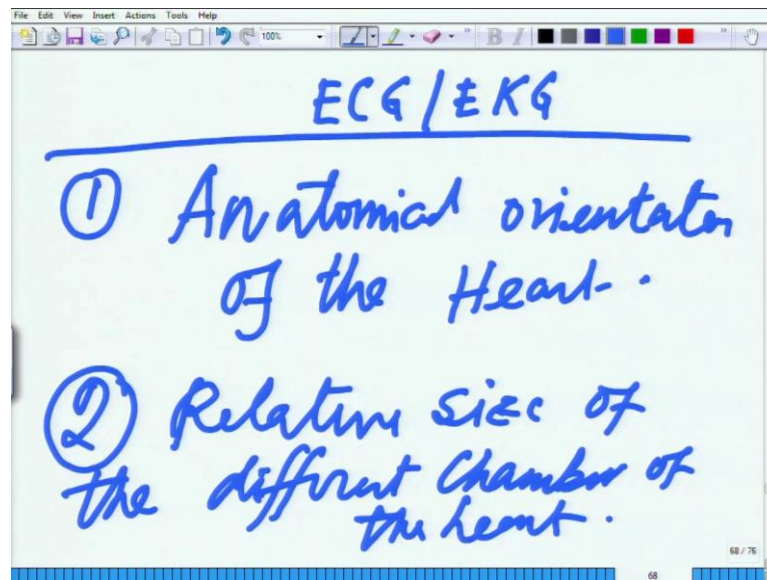 File Edit View Insert Actions Tools Help
100% B I
ECG/EKG
① Anatomical orientaton
of the Heart.
② Relative size of
the different Chamber of
the heart.
68 / 76
68